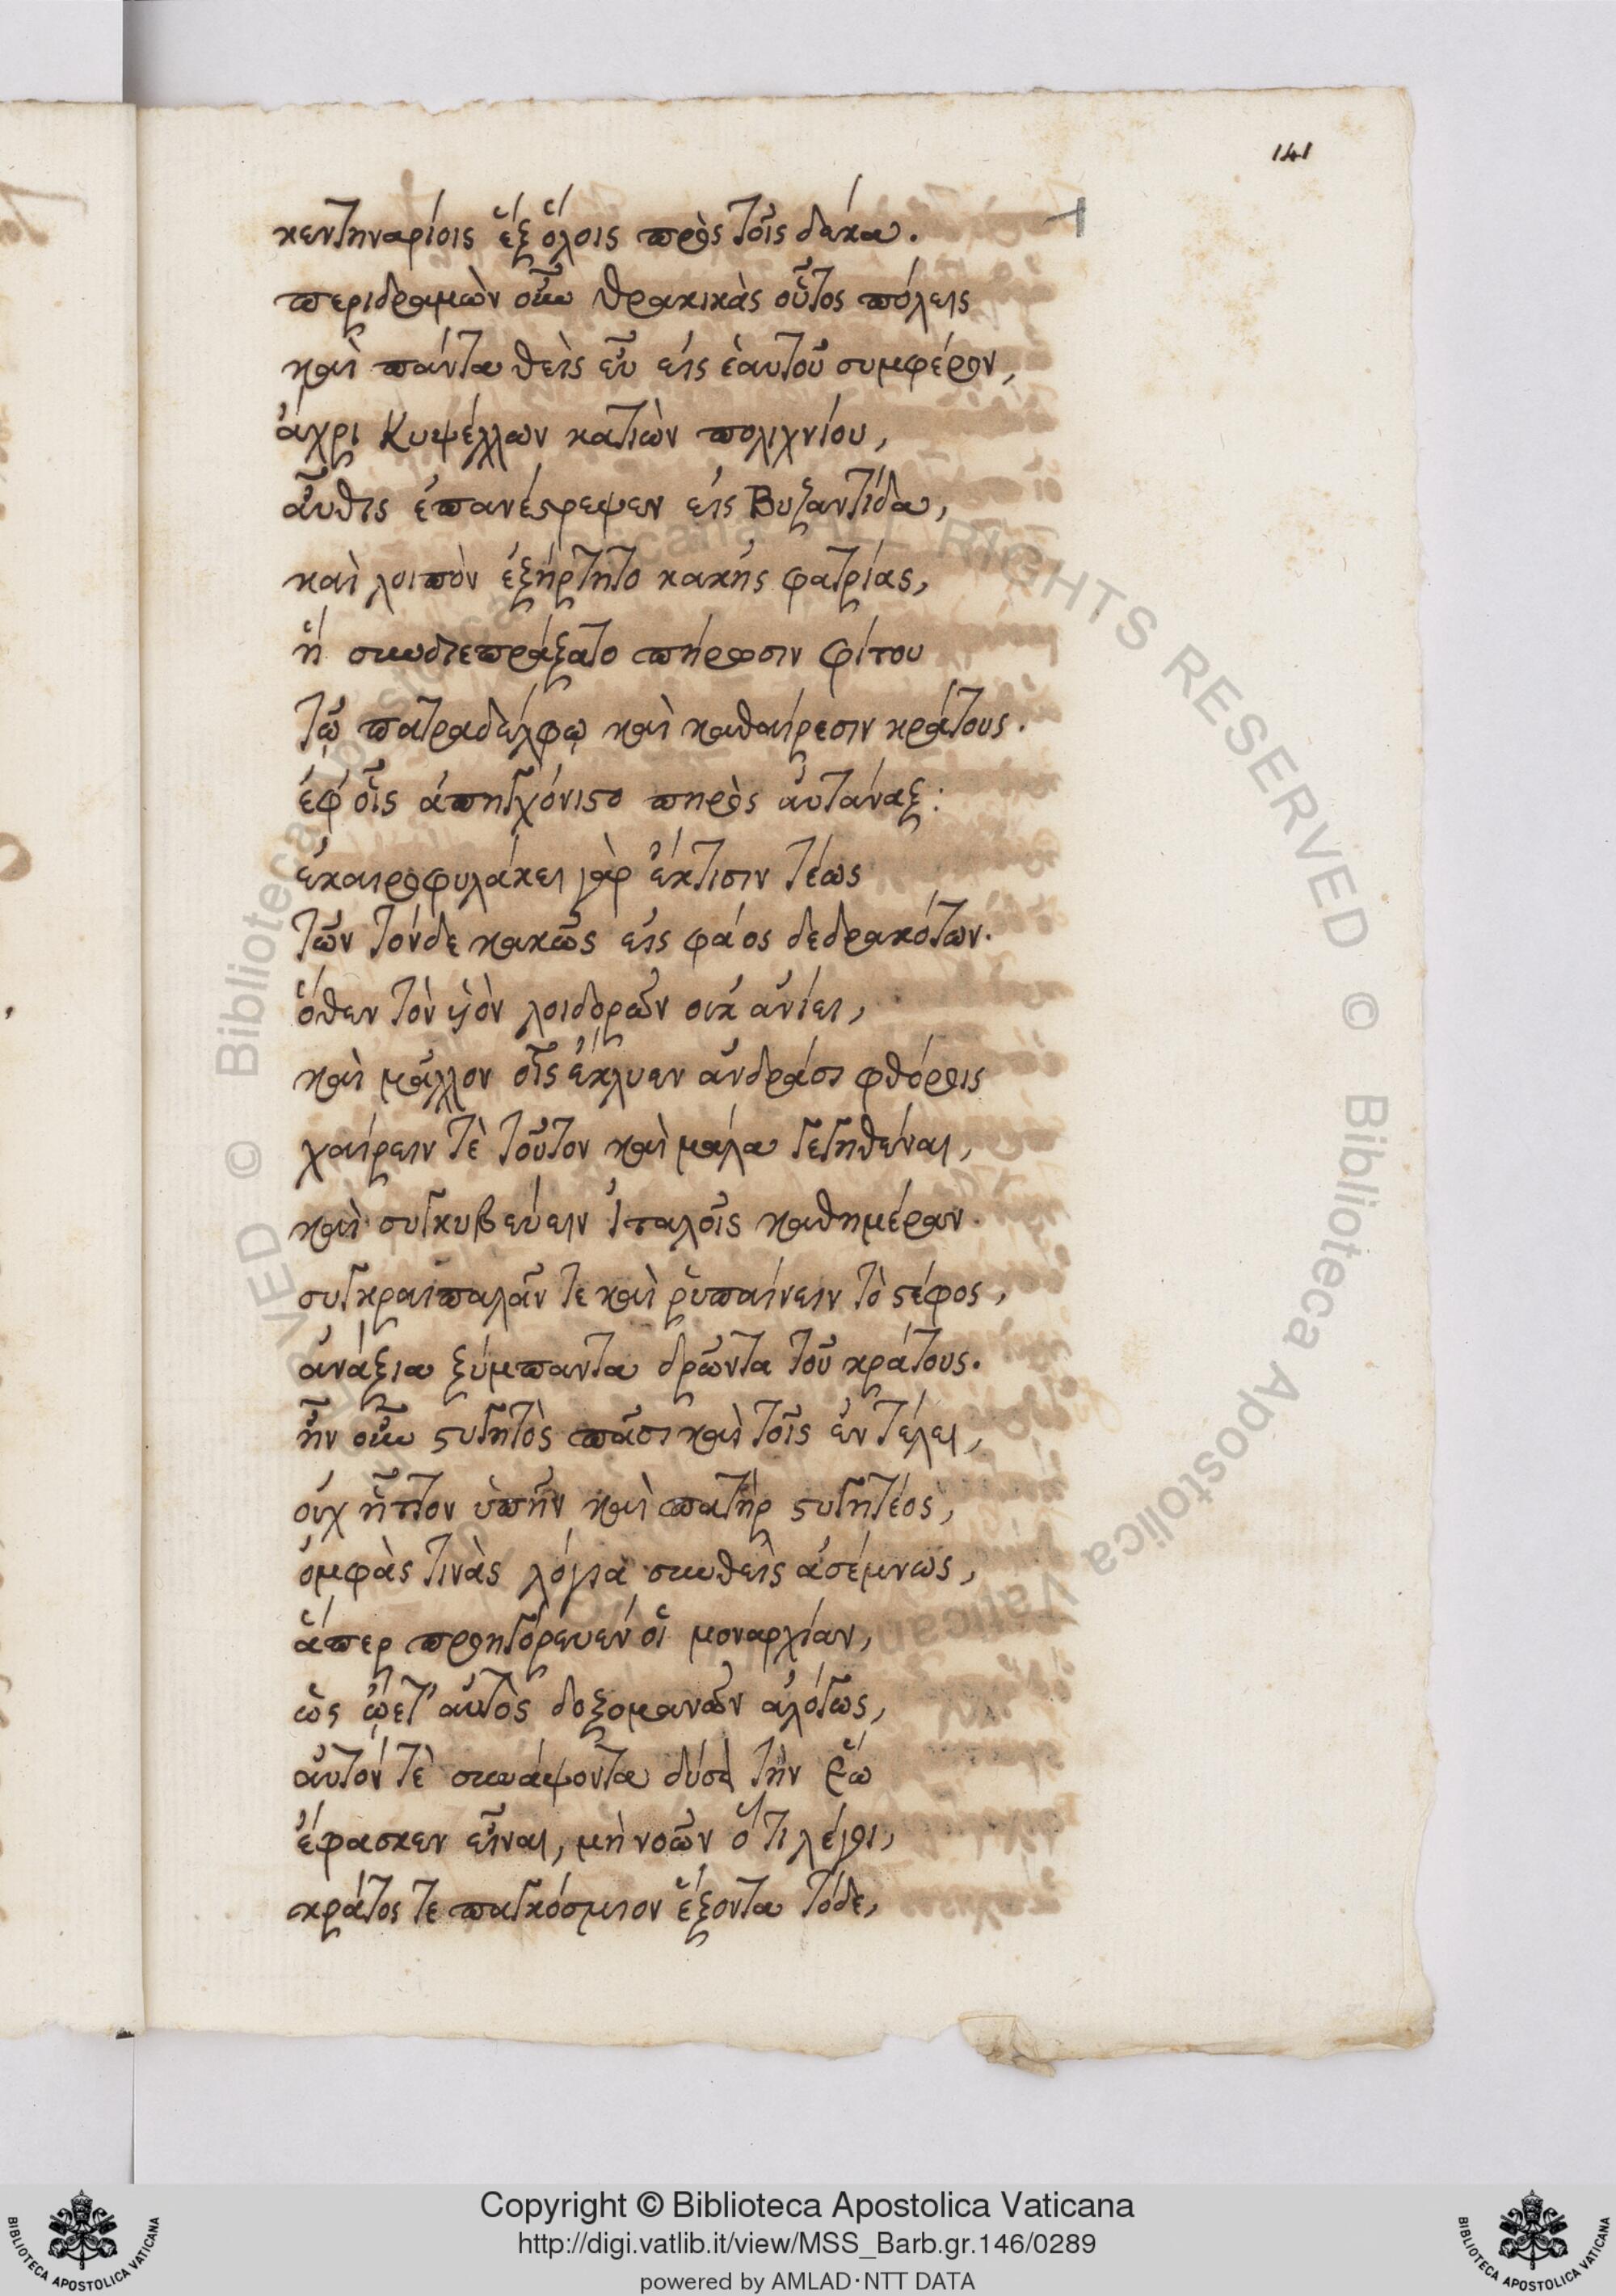 141
κεντηναρίοις ἕξ ὅλοις πρὸς τοῖς δέκα.
περιδραμὼν οὖν θρακικὰς οὗτος πόλεις
καὶ πάντα θεὶς εὖ εἰς ἑαυτοῦ συμφέρον,
ἄχρι Κυψέλλων κατιὼν πολιχνίου,
αὖθις ἐπανέστρεψεν εἰς Βυζαντίδα,
καὶ λοιπὸν ἐξήρτητο κακῆς φατρίας,
ἣ συνδιεπράξατο πήρωσιν φίτου
τῷ πατραδέλφῳ καὶ καθαίρεσιν κράτους.
ἐφ' οἷς ἀπηγχόνιστο πηρὸς αὐτάναξ:
ἐκαιροφυλάκει γὰρ ἔκτισιν τέως
τῶν τόνδε κακῶς εἰς φάος δεδρακότων.
ὅθεν τὸν υἱὸν λοιδορῶν οὐκ ἀνίει,
καὶ μᾶλλον οἷς ἔκλυεν ἀνδράσι φθόροις
χαίρειν τὲ τοῦτον καὶ μάλα γεγηθέναι,
καὶ συγκυβεύειν Ἰταλοῖς καθημέραν.
συγκραιπαλᾶν τε καὶ ῥυπαίνειν τὸ στέφος,
ἀνάξια ξύμπαντα δρῶντα τοῦ κράτους.
ἦν οὖν στυγητὸς πᾶσι καὶ τοῖς ἐν τέλει,
οὐχ ἧττον ὑπῆν καὶ πατὴρ στυγητέος,
ὀμφὰς τινὰς λόγια συνθεὶς ἀσέμνως,
ἅπερ προηγόρευέν οἱ μοναρχίαν,
ὡς ᾤετ' αὐτὸς δοξομανῶν ἀλόγως,
αὐτόν τὲ συνάψοντα δύσει τὴν ἕω
ἔφασκεν εἶναι, μὴ νοῶν ὅ τι λέγοι,
κράτος τε παγκόσμιον ἕξοντα τόδε,
© Biblioteca Apostolica Vaticana ALL RIGHTS RESERVED © Biblioteca Apostolica Vaticana
Copyright © Biblioteca Apostolica Vaticana
http://digi.vatlib.it/view/MSS_Barb.gr.146/0289
powered by AMLAD·NTT DATA
BIBLIOTECA APOSTOLICA VATICANA
BIBLIOTECA APOSTOLICA VATICANA